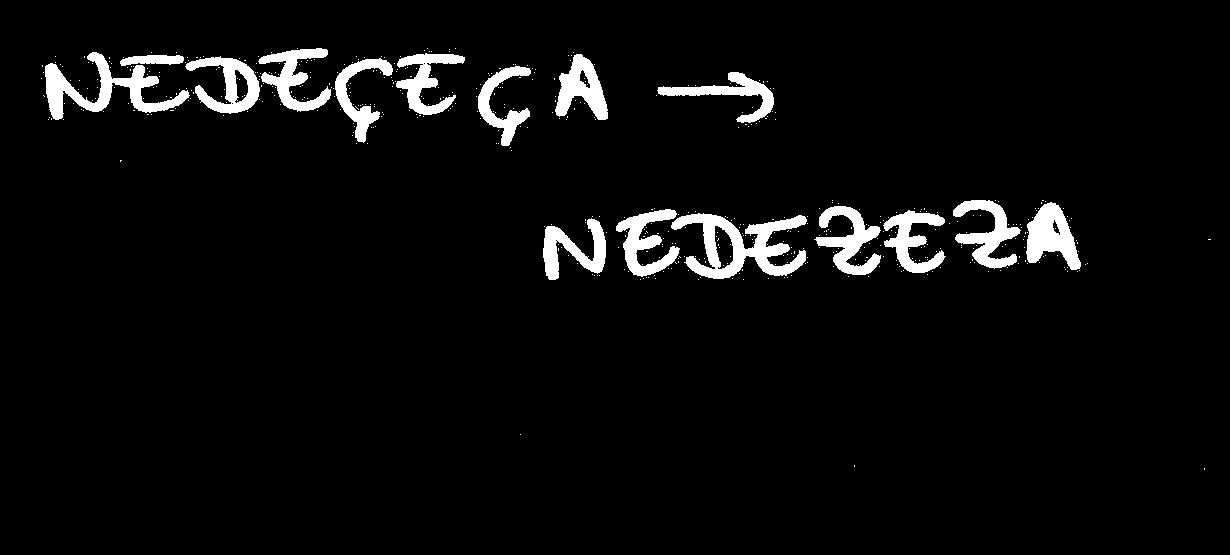 NEDEÇEÇA →
NEDEZEZA